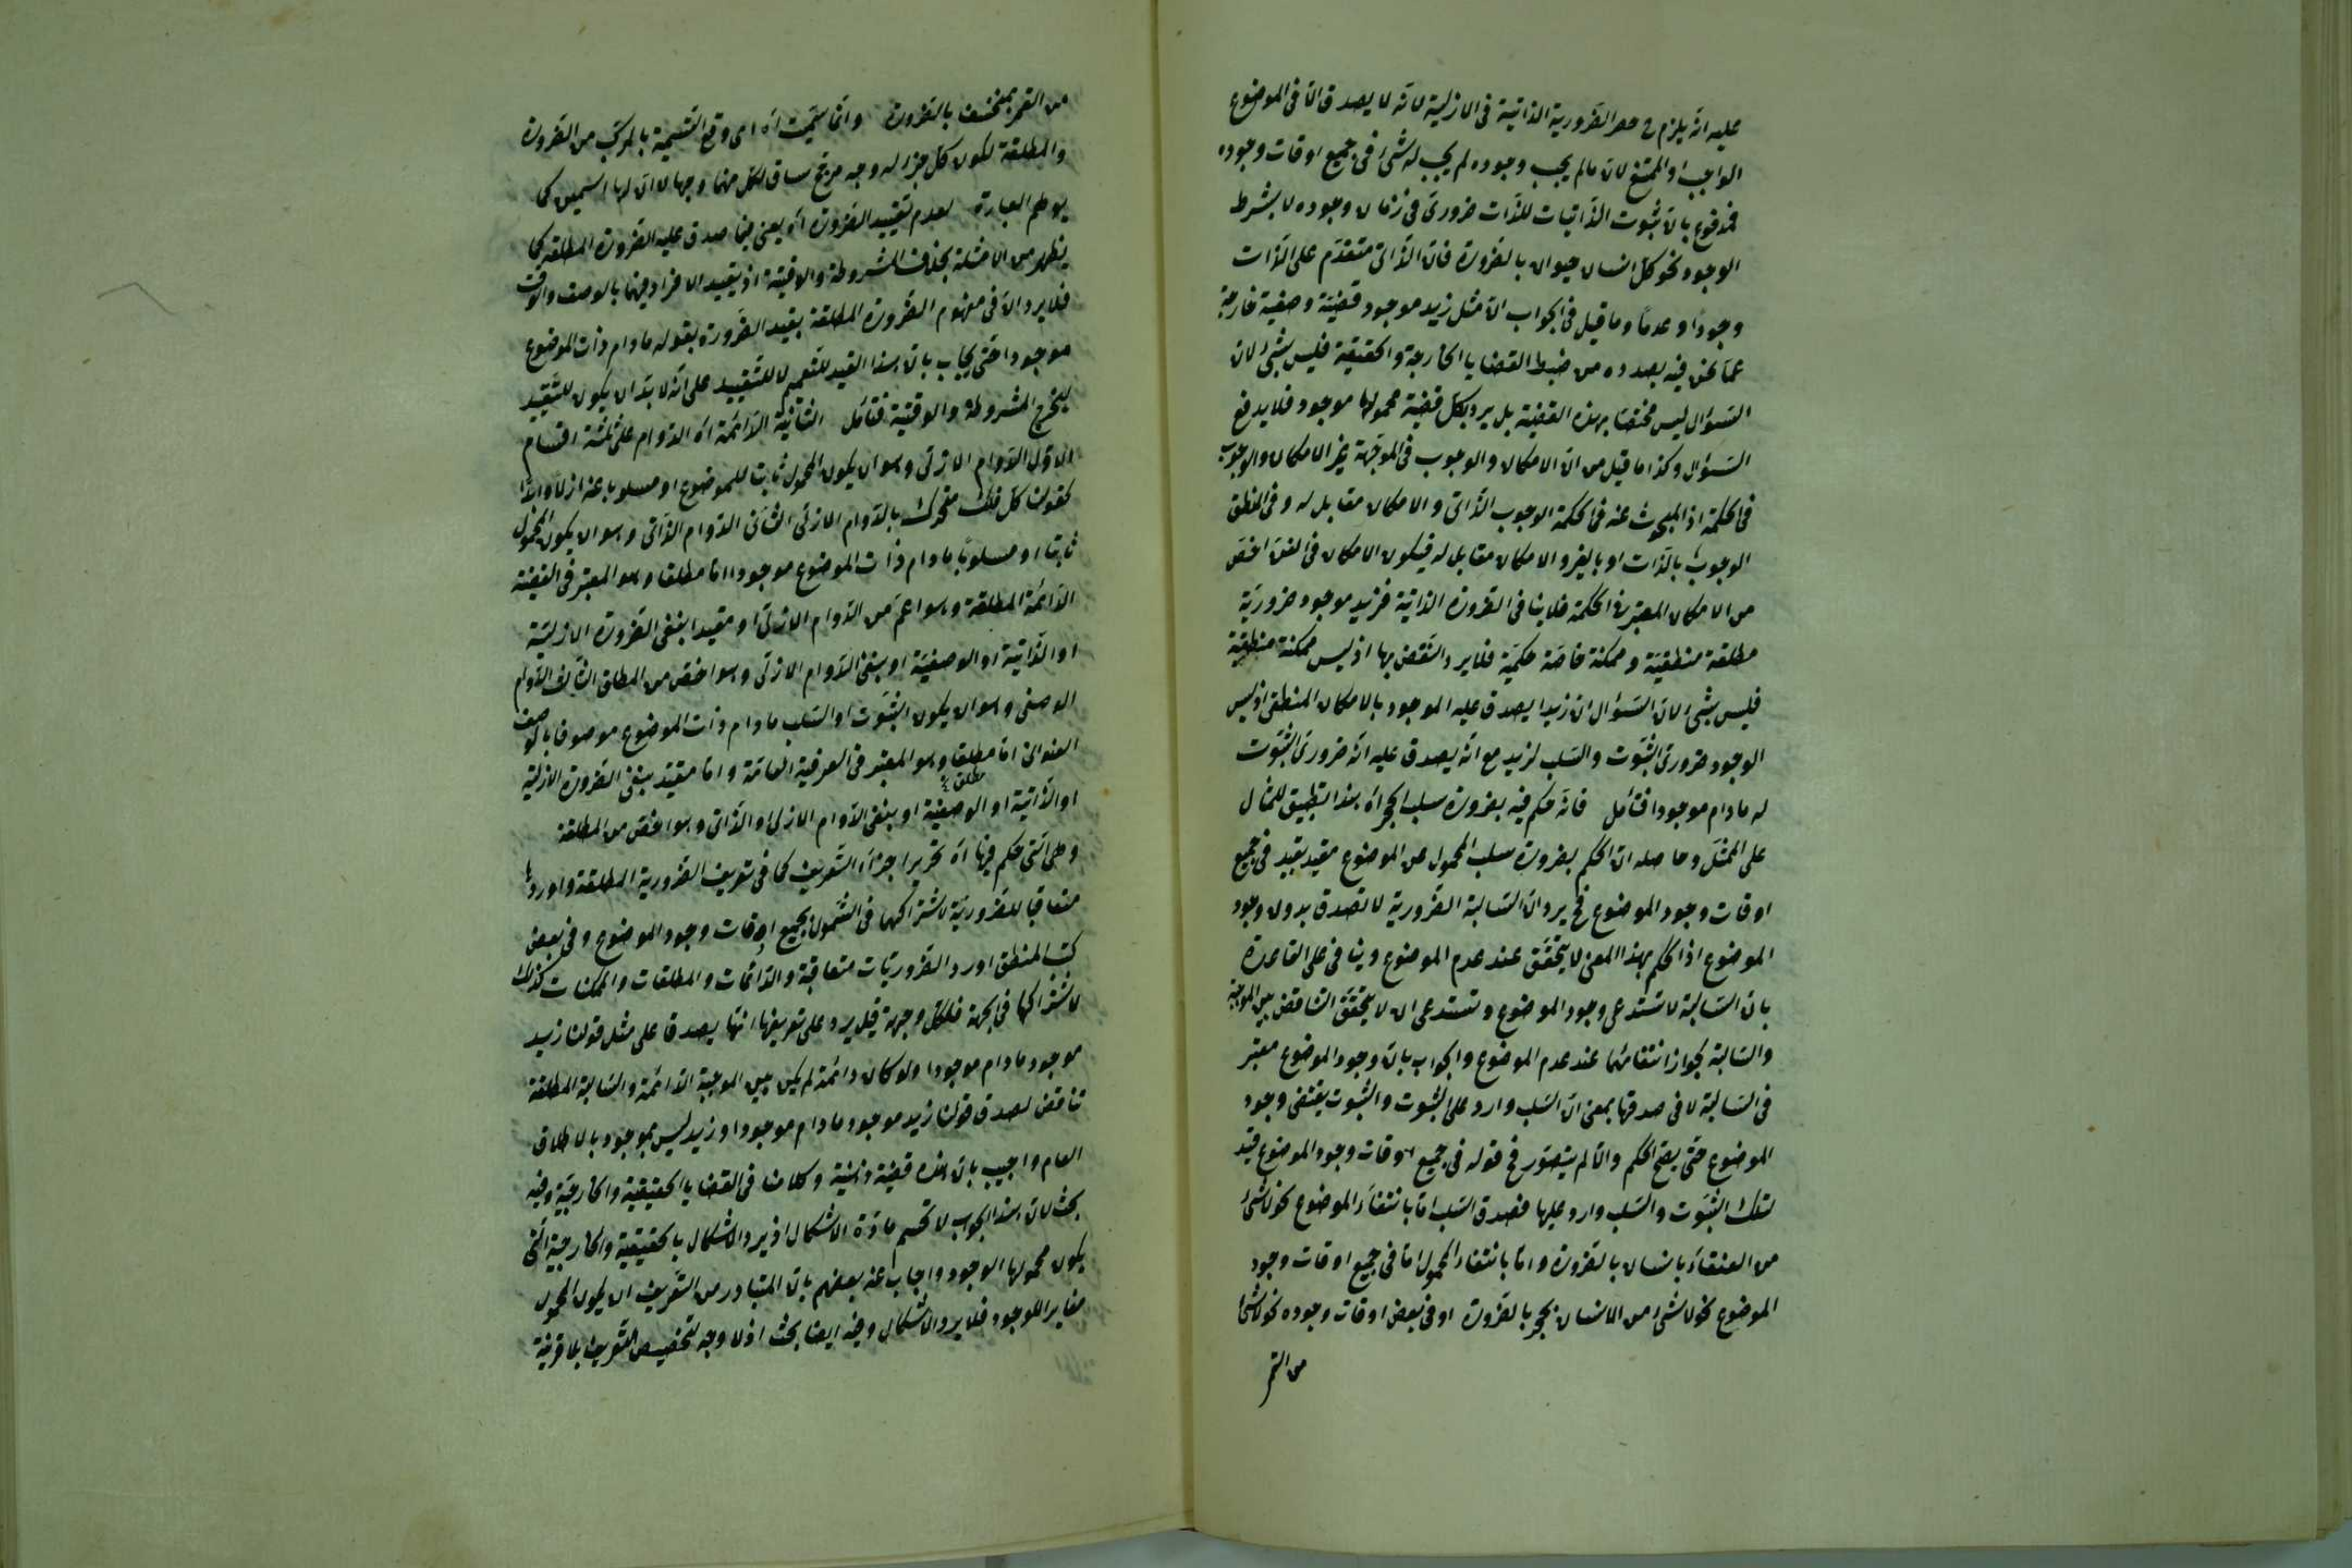 عليه انه يلزم ح حصر الضرورية الذاتية فى الازلية لانه لا يصدق الا فى الموضوع
الواجب او الممتنع لان مالم يجب وجوده لم يجب له شئ فى جميع اوقات وجوده
فمدفوع بان ثبوت الذاتيات للذات ضرورى فى زمان وجوده لا بشرط
الوجود نحو كل انسان حيوان بالضرورة فان الذاتى متقدم على الذات
وجودا و عدما وما قيل فى الجواب ان مثل زيد موجود قضية وصفية خارجة
عما نحن فيه بصدده من ضبط القضايا الخارجة والحقيقية فليس بشئ لان
السؤال ليس مختصا بهذه القضية بل يرد بكل قضية محمولها موجود فلا يدفع
السؤال وكذا ما قيل من ان الامكان والوجوب فى الموجهة غير الامكان والوجوب
فى الحكمة اذ المبحوث عنه فى الحكمة الوجوب الذاتى والامكان مقابل له وفى المنطق
الوجوب بالذات او بالغير والامكان مقابل له فيكون الامكان فى الفن اخص
من الامكان المعتبر فى الحكمة فلا ينافى الضرورة الذاتية فزيد موجود ضرورية
مطلقة منطقية وممكنة خاصة حكمية فلا يرد النقض بها اذ ليس ممكنة منطقية
فليس بشئ لان السؤال ان زيدا يصدق عليه الموجود بالامكان المنطقى اذ ليس
الوجود ضرورى الثبوت والسلب لزيد مع انه يصدق عليه انه ضرورى الثبوت
له مادام موجودا فتأمل فانه حكم فيه بضرورة سلب الحجر اه هذا تطبيق للمثال
على الممثل وحاصله ان الحكم بضرورة سلب المحمول عن الموضوع مقيد بقيد فى جميع
اوقات وجود الموضوع فح يرد ان السالبة الضرورية لا تصدق بدون وجود
الموضوع اذ الحكم بهذا المعنى لا يتحقق عند عدم الموضوع وينافى على القاعدة
بان السالبة لا تستدعى وجود الموضوع وتستدعى ان لا يتحقق التناقض بين الموجبة
والسالبة لجواز انتفائهما عند عدم الموضوع والجواب بان وجود الموضوع معتبر
فى السالبة لا فى صدقها بمعنى ان السلب وارد على الثبوت والثبوت يقتضى وجود
الموضوع حتى يصح الحكم والا لم يتصور فح قوله فى جميع اوقات وجود الموضوع قيد
لتلك الثبوت والسلب وارد عليها فصدق السلب اما بانتفاء الموضوع نحو لا شئ
من العنقاء بانسان بالضرورة واما بانتفاء المحمول اما فى جميع اوقات وجود
الموضوع نحو لا شئ من الانسان بحجر بالضرورة او فى بعض اوقات وجوده نحو لا شئ
من القمر
من القمر بمنخسف بالضرورة وانما سميت اه اى وقع التسمية بالمركب من الضرورة
والمطلقة لكون كل جزء له وجه مرجح لكل منهما وجها لا ان لها اسمين كما
يوهم العبارة لعدم تقييد الضرورة اه يعنى فيما صدق عليه الضرورة المطلقة كما
يظهر من الامثلة بخلاف المشروطة والوقتية اذ يقيد الافراد فيهما بالوصف والوقت
فلا يرد ان فى مفهوم الضرورة المطلقة بقيد الضرورة بقوله مادام ذات الموضوع
موجودا حتى يجاب بان هذا القيد للتعميم لا للتقييد على انه لا بد ان يكون للتقييد
ليخرج المشروطة والوقتية فتأمل الثانية الدائمة اه الدوام على ثلثة اقسام
الاول الدوام الازلى وهو ان يكون المحمول ثابتا للموضوع او مسلوبا عنه ازلا وابدا
كقولنا كل فلك متحرك بالدوام الازلى الثانى الدوام الذاتى وهو ان يكون المحمول
ثابتا او مسلوبا مادام ذات الموضوع موجودا اما مطلقا وهو المعتبر فى القضية
الدائمة المطلقة وهو اعم من الدوام الازلى او مقيدا بنفى الضرورة الازلية
او الذاتية او الوصفية او بنفى الدوام الازلى وهو اخص من المطلق الثالث الدوام
الوصفى وهو ان يكون الثبوت او السلب مادام ذات الموضوع موصوفا بالوصف
العنوانى اما مطلقا وهو المعتبر فى العرفية العامة واما مقيد بنفى الضرورة الازلية
او الذاتية او الوصفية او بنفى الدوام الازلى او الذاتى وهو اخص من المطلقة
وهى التى حكم فيها اه تحرير اجزاء التعريف كما فى تعريف الضرورية المطلقة واوردها
متعاقبا للضرورية لاشتراكهما فى الشمول بجميع اوقات وجود الموضوع وفى بعض
كتب المنطق اورد الضروريات متعاقبة والدائمات والمطلقات والممكنات كذلك
لاشتراكها فى الجهة فلكل وجهة قيل يرد على تعريفها انها يصدق على مثل قولنا زيد
موجود مادام موجودا ولو كان دائمة لم يكن بين الموجبة الدائمة والسالبة المطلقة
تناقض لصدق قولنا زيد موجود مادام موجودا وزيد ليس بموجود بالاطلاق
العام واجيب بان هذه قضية ذهنية وكلامنا فى القضايا الحقيقية والخارجية وفيه
بحث لان هذا الجواب لا تحسم مادة الاشكال اذ يرد الاشكال بالحقيقية والخارجية التى
يكون محمولها الوجود واجاب عنه بعضهم بان المتبادر من التعريف ان يكون المحمول
مغايرا للوجود فلا يرد الاشكال وفيه ايضا بحث اذ لا وجه لتخصيص التعريف بلا قرينة